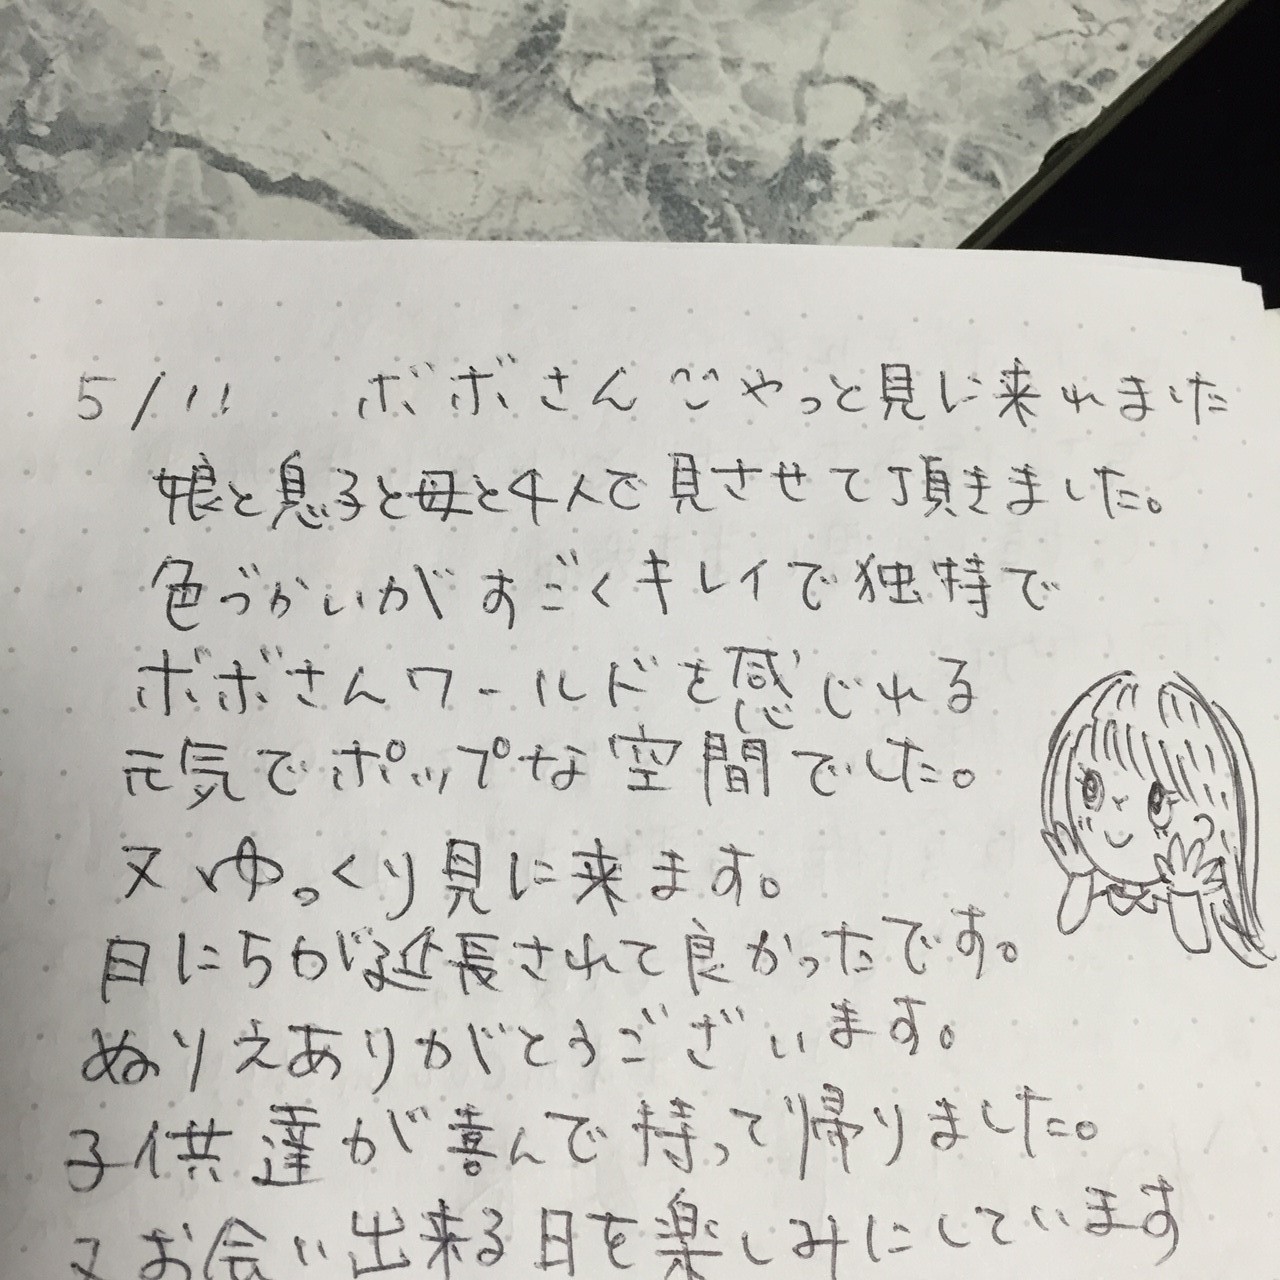 5/11 ボボさん やっと見に来れました
娘と息子と母と4人で見させて頂きました。
色づかいがすごくキレイで独特で
ボボさんワールドを感じれる
元気でポップな空間でした。
又ゆっくり見に来ます。
日にちが延長されて良かったです。
ぬりえありがとうございます。
子供達が喜んで持って帰りました。
又お会い出来る日を楽しみにしています